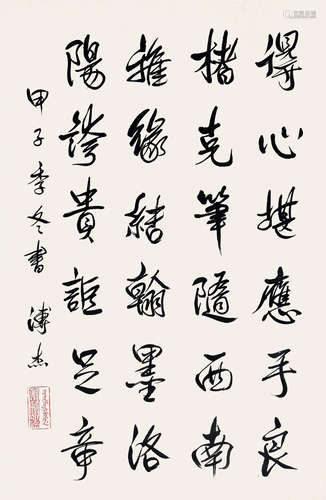 得心堪應手良
楮克筆隨西南
雅緣結翰墨洛
陽誇貴詎足竒
甲子季冬書 溥杰